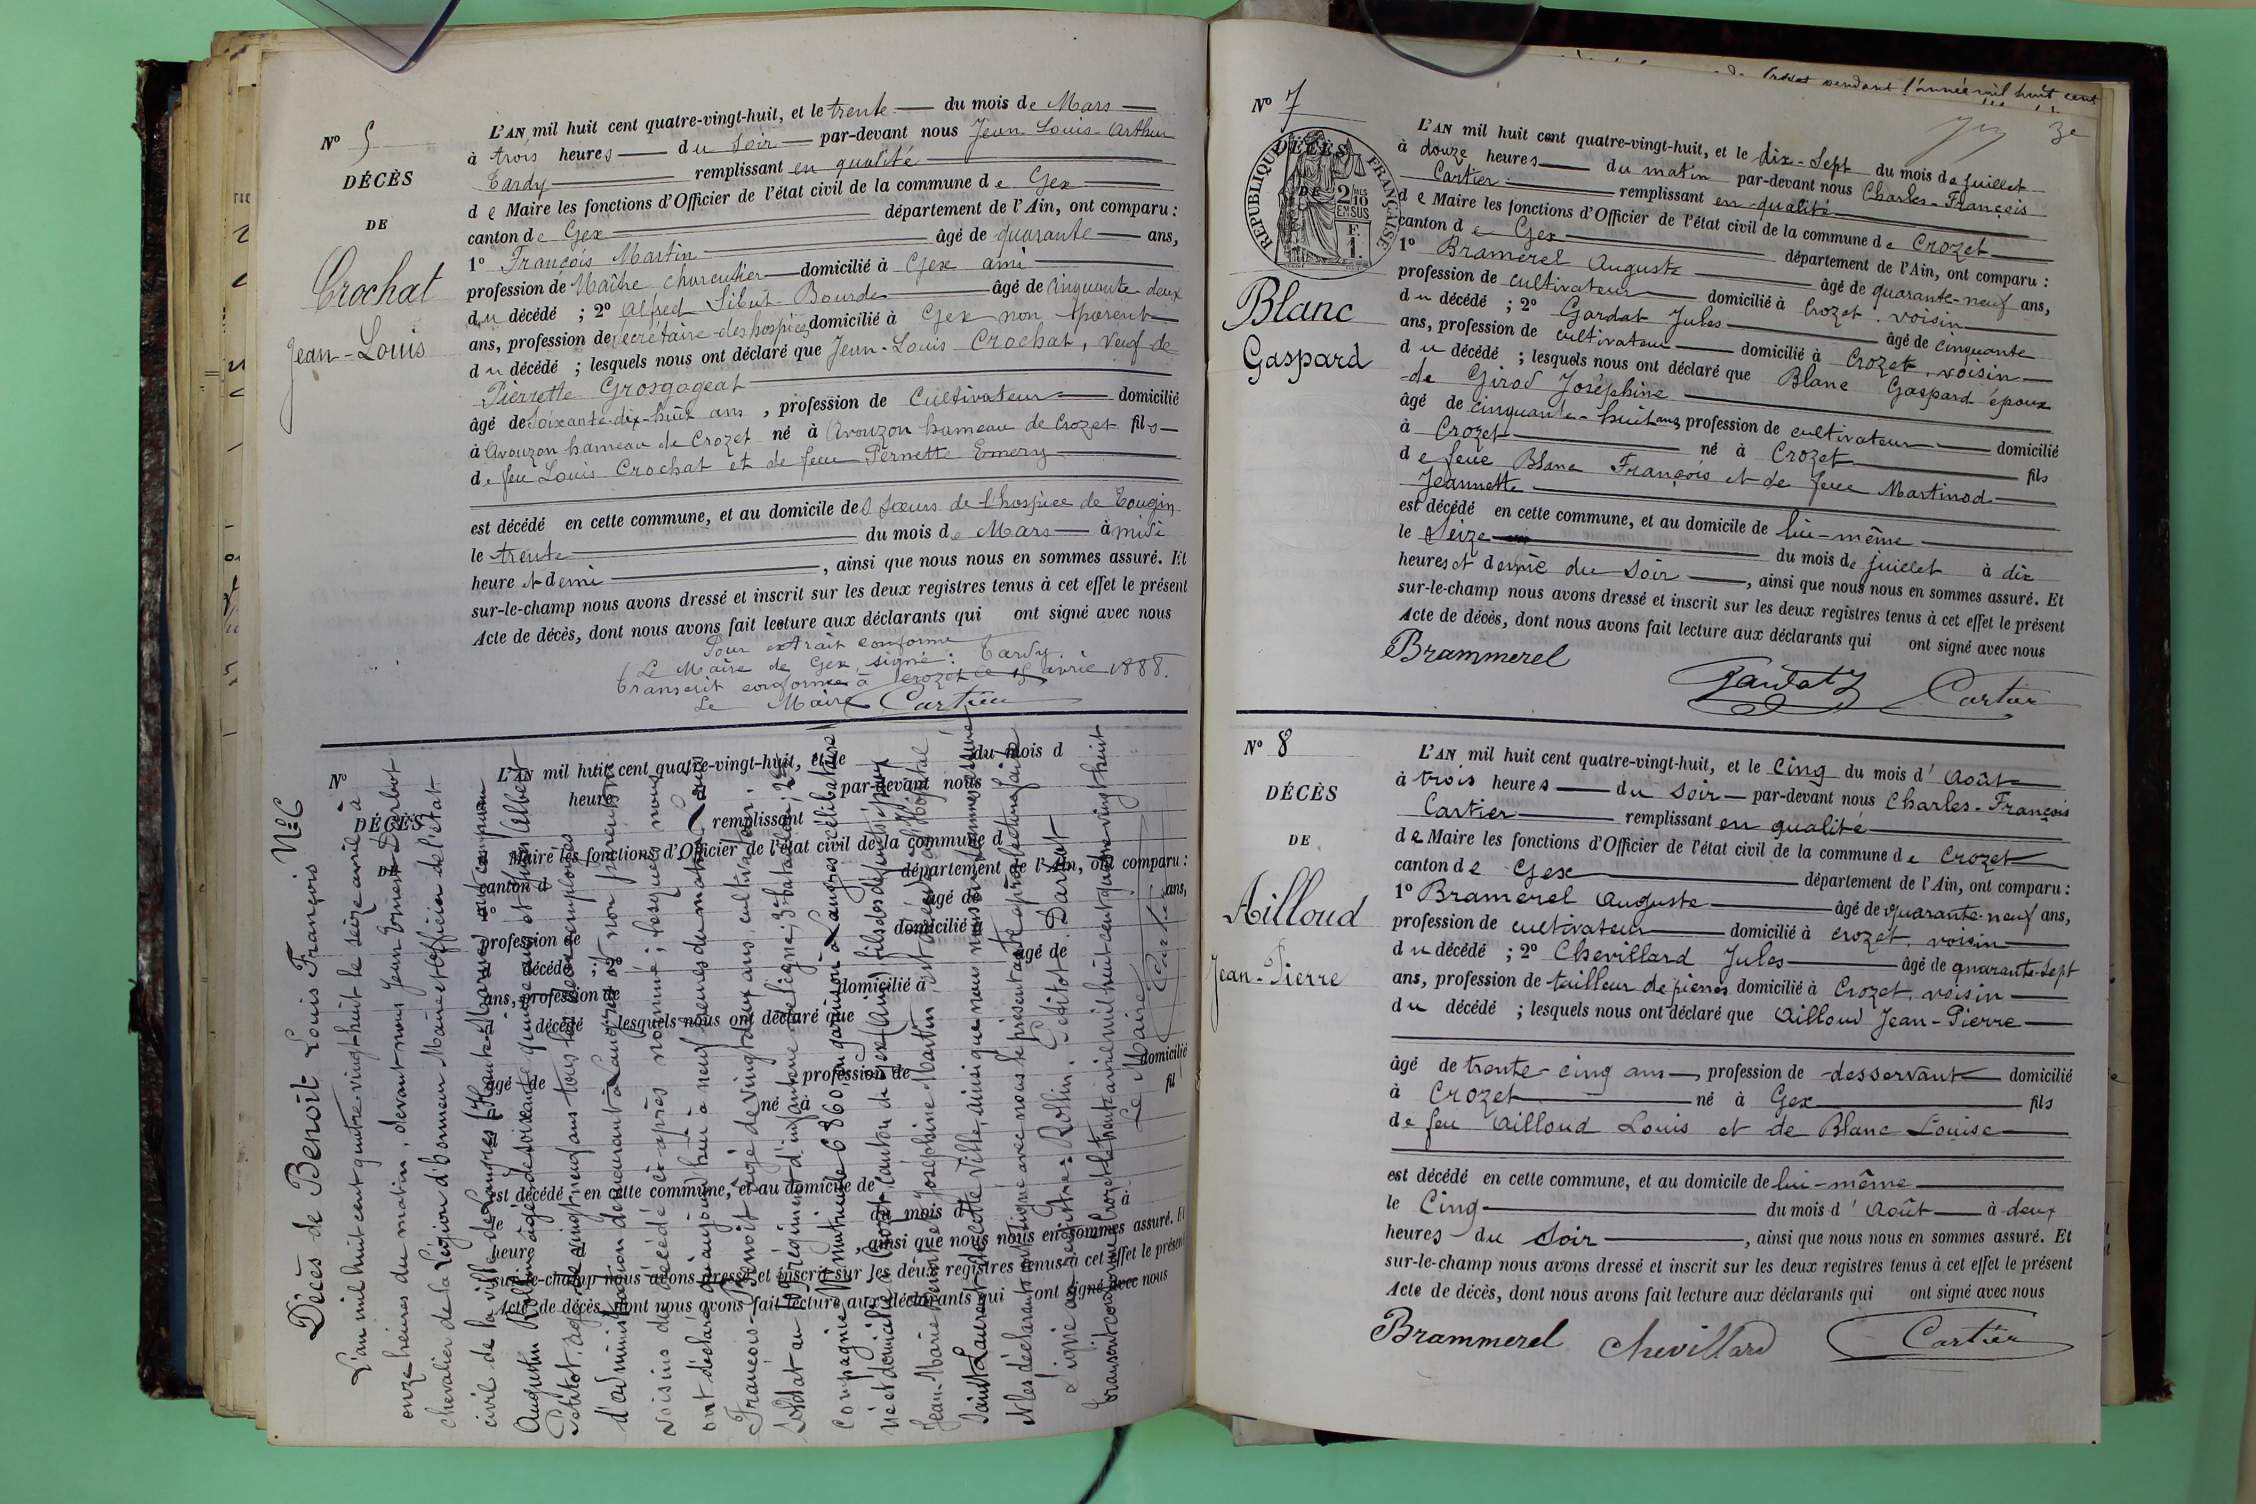 N° 5
DÉCÈS
DE
Crochat
Jean-Louis
L'AN mil huit cent quatre-vingt-huit, et le trente du mois de Mars
à trois heures du soir par-devant nous Jean Louis-Arthur
Tardy remplissant en qualité
de Maire les fonctions d'Officier de l'état civil de la commune de Gex
canton de Gex département de l'Ain, ont comparu :
1° François Martin âgé de quarante ans,
profession de Maître charcutier domicilié à Gex ami
du décédé ; 2° Alfred Sibut-Bourde âgé de cinquante deux
ans, profession de secrétaire des hospices domicilié à Gex non parent
du décédé ; lesquels nous ont déclaré que Jean-Louis Crochat, veuf de
Pierrette Grosgogeat
âgé de soixante-dix-huit ans, profession de Cultivateur domicilié
à Avouzon hameau de Crozet né à Avouzon hameau de Crozet fils
de feu Louis Crochat et de feue Pernette Emery
est décédé en cette commune, et au domicile des sœurs de l'hospice de Tougin
le trente du mois de Mars à midi
heure et demi, ainsi que nous nous en sommes assuré. Et
sur-le-champ nous avons dressé et inscrit sur les deux registres tenus à cet effet le présent
Acte de décès, dont nous avons fait lecture aux déclarants qui ont signé avec nous
Pour extrait conforme
Le Maire de Gex, signé : Tardy.
Transcrit conforme à Crozet le 15 avril 1888.
Le Maire Cartier
N°
DÉCÈS
DE
L'AN mil huit cent quatre-vingt-huit, et le du mois d
heure par-devant nous
remplissant
Maire les fonctions d'Officier de l'état civil de la commune d
canton d département de l'Ain, ont comparu :
1° âgé de ans,
profession de domicilié à
décédé ; 2° âgé de
ans, profession de domicilié à
d décédé lesquels nous ont déclaré que
âgé de profession de domicilié
né à fil
est décédé en cette commune, et au domicile de
le du mois d à
heure , ainsi que nous nous en sommes assuré. Et
sur-le-champ nous avons dressé et inscrit sur les deux registres tenus à cet effet le présent
Acte de décès, dont nous avons fait lecture aux déclarants qui ont signé avec nous
Décès de Benoit Louis François N° 6
L'an mil huit cent quatre-vingt-huit le seize avril à
onze heures du matin, devant nous Jean Ernest Darbot
chevalier de la Légion d'honneur Maire et officier de l'état
civil de la ville de Langres (Haute-Marne) ont comparu
Augustin Rollin âgé de soixante quinze ans et Albert
Petitot âgé de vingt neuf ans tous les deux employés
d'administration demeurant à Langres et non parents ni
voisins du décédé ci-après nommé ; lesquels nous
ont déclaré qu'aujourd'hui à neuf heures du matin Louis
François Benoit âgé de vingt deux ans, cultivateur,
soldat au régiment d'infanterie de ligne, 3e bataillon, 2e
compagnie N° matricule 6860 en garnison à Langres célibataire
né et domicilié à Crozet canton de Gex (Ain) fils des défunts époux
Jean-Marie Benoit et Joséphine Martin, est décédé à l'Hôpital
Saint Laurent de cette ville, ainsi que nous nous en sommes assuré
et les déclarants ont signé avec nous le présent acte après lecture faite
Signé au registre : Rollin, Petitot, Darbot
Transcrit conforme Crozet le trente avril mil huit cent quatre vingt huit
Le Maire Cartier
Crozet pendant l'année mil huit cent
3e
N° 7
DÉCÈS
DE
RÉPUBLIQUE FRANÇAISE
2/10 EN SUS
F. 1.
Blanc
Gaspard
L'AN mil huit cent quatre-vingt-huit, et le dix-sept du mois de juillet
à douze heures du matin par-devant nous Charles-François
Cartier remplissant en qualité
de Maire les fonctions d'Officier de l'état civil de la commune de Crozet
canton de Gex département de l'Ain, ont comparu :
1° Bramerel Auguste âgé de quarante-neuf ans,
profession de cultivateur domicilié à Crozet. voisin
du décédé ; 2° Gardat Jules âgé de cinquante
ans, profession de cultivateur domicilié à Crozet, voisin
du décédé ; lesquels nous ont déclaré que Blanc Gaspard époux
de Girod Joséphine
âgé de cinquante-huit ans profession de cultivateur domicilié
à Crozet né à Crozet fils
de feue Blanc François et de feue Martinod
Jeannette
est décédé en cette commune, et au domicile de lui-même
le Seize du mois de juillet à dix
heures et demie du soir, ainsi que nous nous en sommes assuré. Et
sur-le-champ nous avons dressé et inscrit sur les deux registres tenus à cet effet le présent
Acte de décès, dont nous avons fait lecture aux déclarants qui ont signé avec nous
Brammerel Gardat J Cartier
N° 8
DÉCÈS
DE
Ailloud
Jean-Pierre
L'AN mil huit cent quatre-vingt-huit, et le cinq du mois d'Août
à trois heures du soir par-devant nous Charles-François
Cartier remplissant en qualité
de Maire les fonctions d'Officier de l'état civil de la commune de Crozet
canton de Gex département de l'Ain, ont comparu :
1° Bramerel Auguste âgé de quarante-neuf ans,
profession de cultivateur domicilié à Crozet, voisin
du décédé ; 2° Chevillard Jules âgé de quarante-sept
ans, profession de tailleur de pierres domicilié à Crozet, voisin
du décédé ; lesquels nous ont déclaré que Ailloud Jean-Pierre
âgé de trente-cinq ans, profession de desservant domicilié
à Crozet né à Gex fils
de feu Ailloud Louis et de Blanc Louise
est décédé en cette commune, et au domicile de lui-même
le Cinq du mois d'Août à deux
heures du Soir, ainsi que nous nous en sommes assuré. Et
sur-le-champ nous avons dressé et inscrit sur les deux registres tenus à cet effet le présent
Acte de décès, dont nous avons fait lecture aux déclarants qui ont signé avec nous
Brammerel Chevillard Cartier